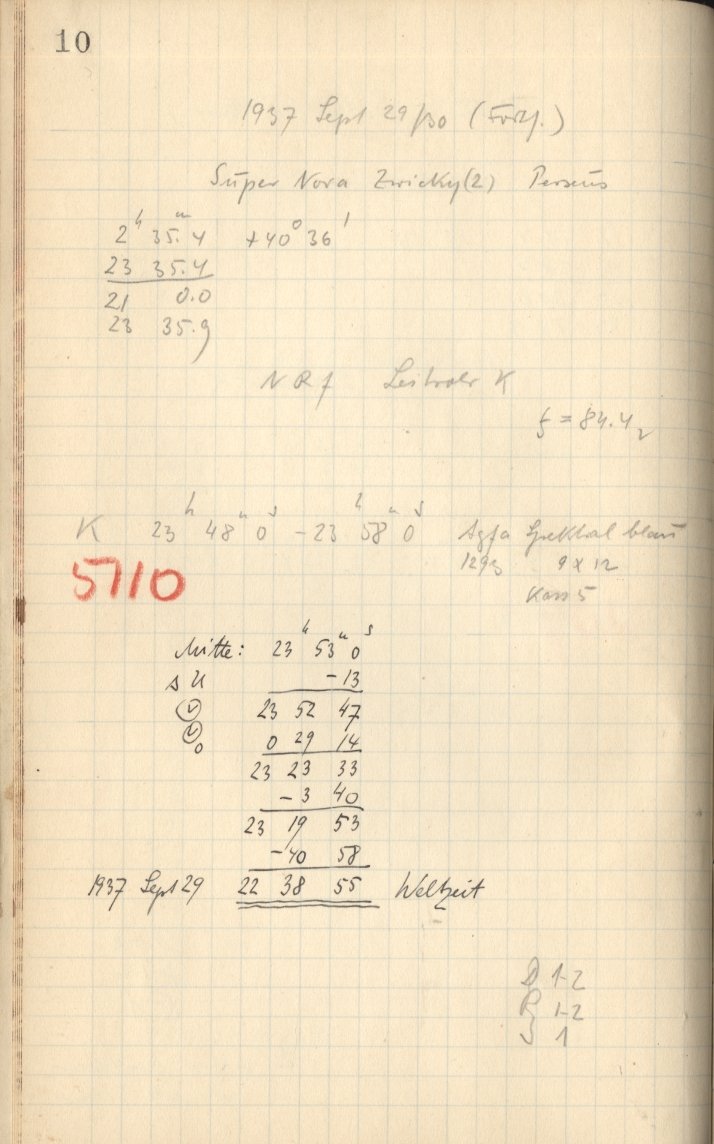 10
1937 Sept 29/30 (Forts.)
Super Nova Zwicky(2) Perseus
2ʰ 35.ᵐ4 +40° 36'
23 35.4
21 0.0
23 35.9
N R f Leitrohr K
f = 84.4₂
K 23ʰ 48ᵐ 0ˢ - 23ʰ 58ᵐ 0ˢ Agfa Spektral blau
1293 9 x 12
5710
Kass 5
Mitte: 23ʰ 53ᵐ 0ˢ
-13
23 52 47
0 29 14
23 23 33
-3 40
23 19 53
-40 58
1937 Sept 29 22 38 55 Weltzeit
D 1-2
R 1-2
1